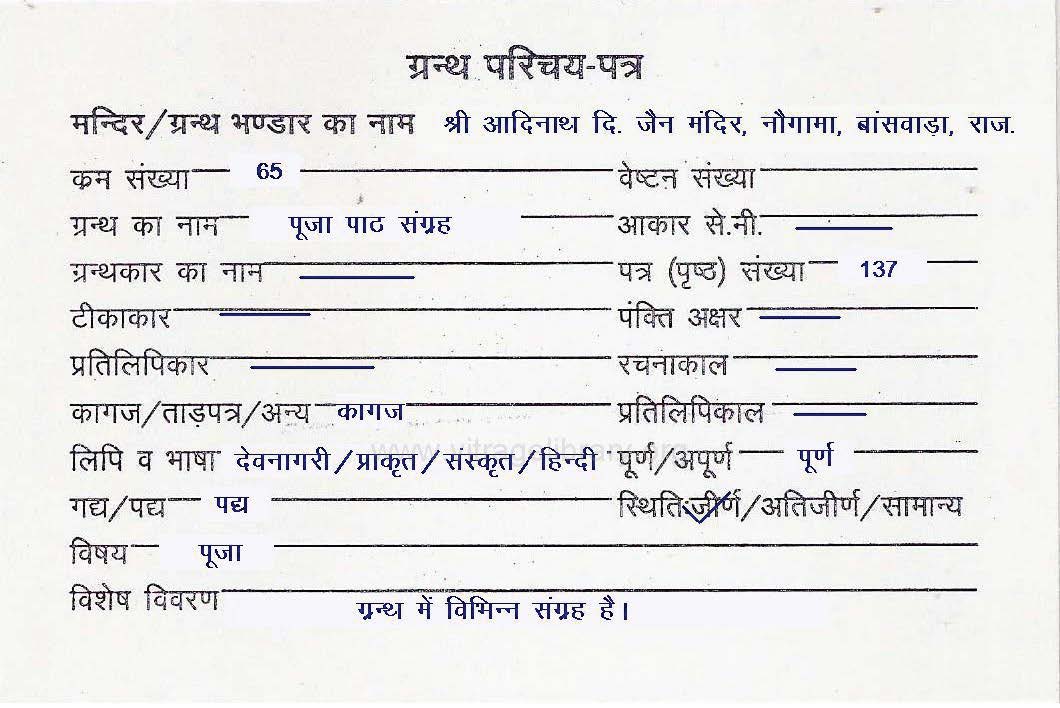 ग्रन्थ परिचय-पत्र
मन्दिर/ग्रन्थ भण्डार का नाम श्री आदिनाथ दि. जैन मंदिर, नौगामा, बांसवाड़ा, राज.
कम संख्या 65 वेष्टन संख्या
ग्रन्थ का नाम पूजा पाठ संग्रह आकार से.नी.
ग्रन्थकार का नाम पत्र (पृष्ठ) संख्या 137
टीकाकार पंक्ति अक्षर
प्रतिलिपिकार रचनाकाल
कागज/ताड़पत्र/अन्य कागज प्रतिलिपिकाल
लिपि व भाषा देवनागरी/प्राकृत/संस्कृत/हिन्दी पूर्ण/अपूर्ण पूर्ण
गद्य/पद्य पद्य स्थिति:जीर्ण/अतिजीर्ण/सामान्य
विषय पूजा
विशेष विवरण ग्रन्थ में विभिन्न संग्रह है।